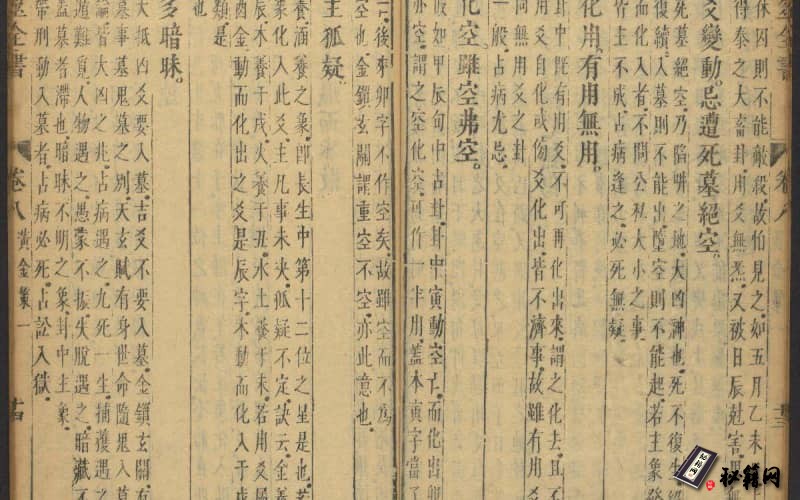 全書
休囚則不能敵殺故怕見之如五月乙未
得泰之大畜卦用爻無炁又被日辰尅害
爻變動忌遭死墓絕空
死墓絕空乃陷穽之地大凶神也死不復生
復續入墓則不能出墮空則不能起若主象
而化入者不問公私大小之事
皆主不成占病逢之必死無疑
化用有用無用
卦中既有用爻不可再化出來謂之化去且不
用爻自化或傷爻化出皆不濟事故雖有用爻
同無用爻之卦
一般占病尤忌
化空雖空弗空
假如甲辰旬中占卦卦中寅動空亡而化出
亦空謂之空化空可作一半用蓋本寅字當了
卷八
十三
一後來卯字不作空矣故雖空而不為
也金鎖玄關謂重空不空亦此意也
主狐疑
養涵養之象即長生中第十二位之星是也若
象化入此爻主凡事未决狐疑不定訣云金養
辰木養于戌火養于丑水土養于未若用爻屬
酉金動而化出之爻是辰字木動而化入于戌
類是
也
多暗昧
大抵凶爻要入墓吉爻不要入墓金鎖玄關有
墓事墓鬼墓之別天玄賦有身世命隨鬼入墓
論皆大凶之兆占病遇之九死一生捕獲遇之
遁難覓人物遇之愚蒙不振失脫遇之暗藏不
蓋墓者滯也暗昧不明之象卦中主象
帶刑動入墓者占病必死占訟入獄
全書
卷八
黃金策一
十四
秘籍网